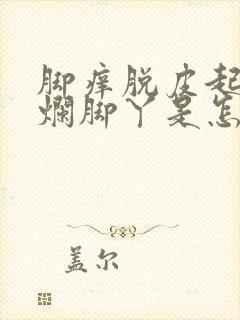 脚痒脱皮起
烂脚丫是怎
盖尔